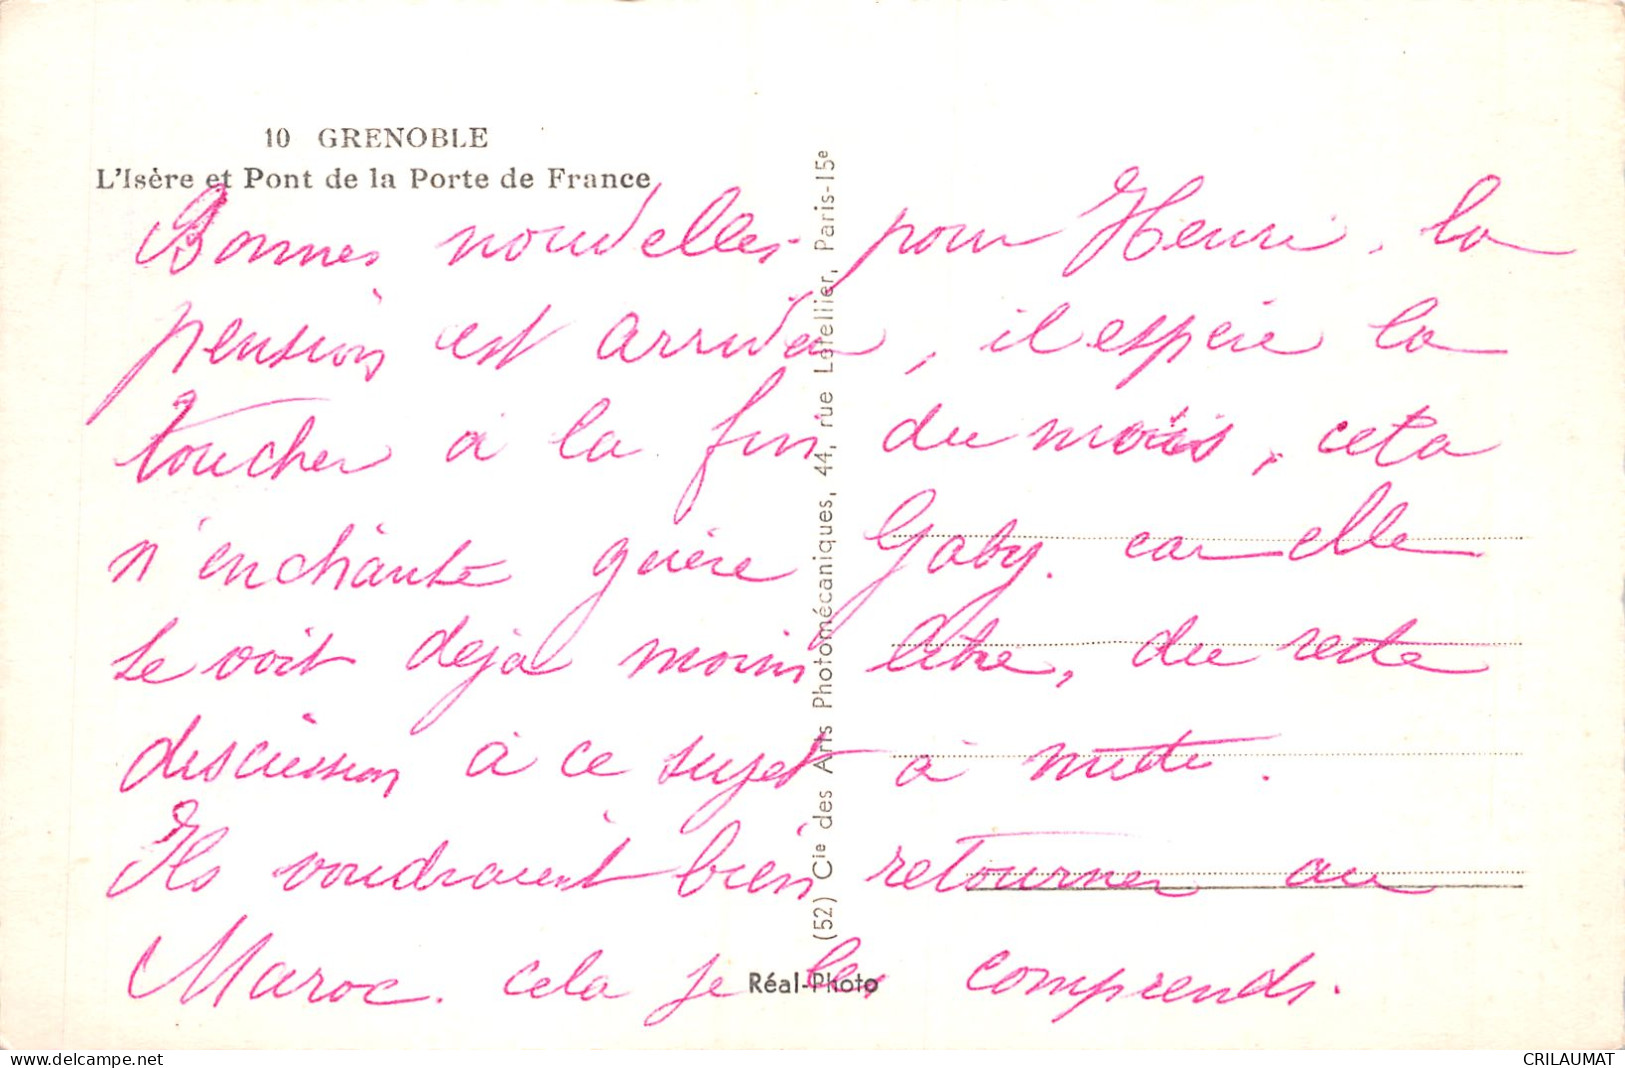 10 GRENOBLE
L'Isère et Pont de la Porte de France
Bonnes nouvelles pour Henri, la
pension est arrivée, il espère la
toucher à la fin du mois, cela
n'enchante guère Gaby. car elle
se voit déjà moins libre, du reste
discussion à ce sujet à
Ils voudraient bien retourner au
Maroc. cela je les comprends.
(52) Cie des Arts Photomécaniques, 44, rue Letellier, Paris-15e
Réal-Photo
www.delcampe.net
CRILAUMAT